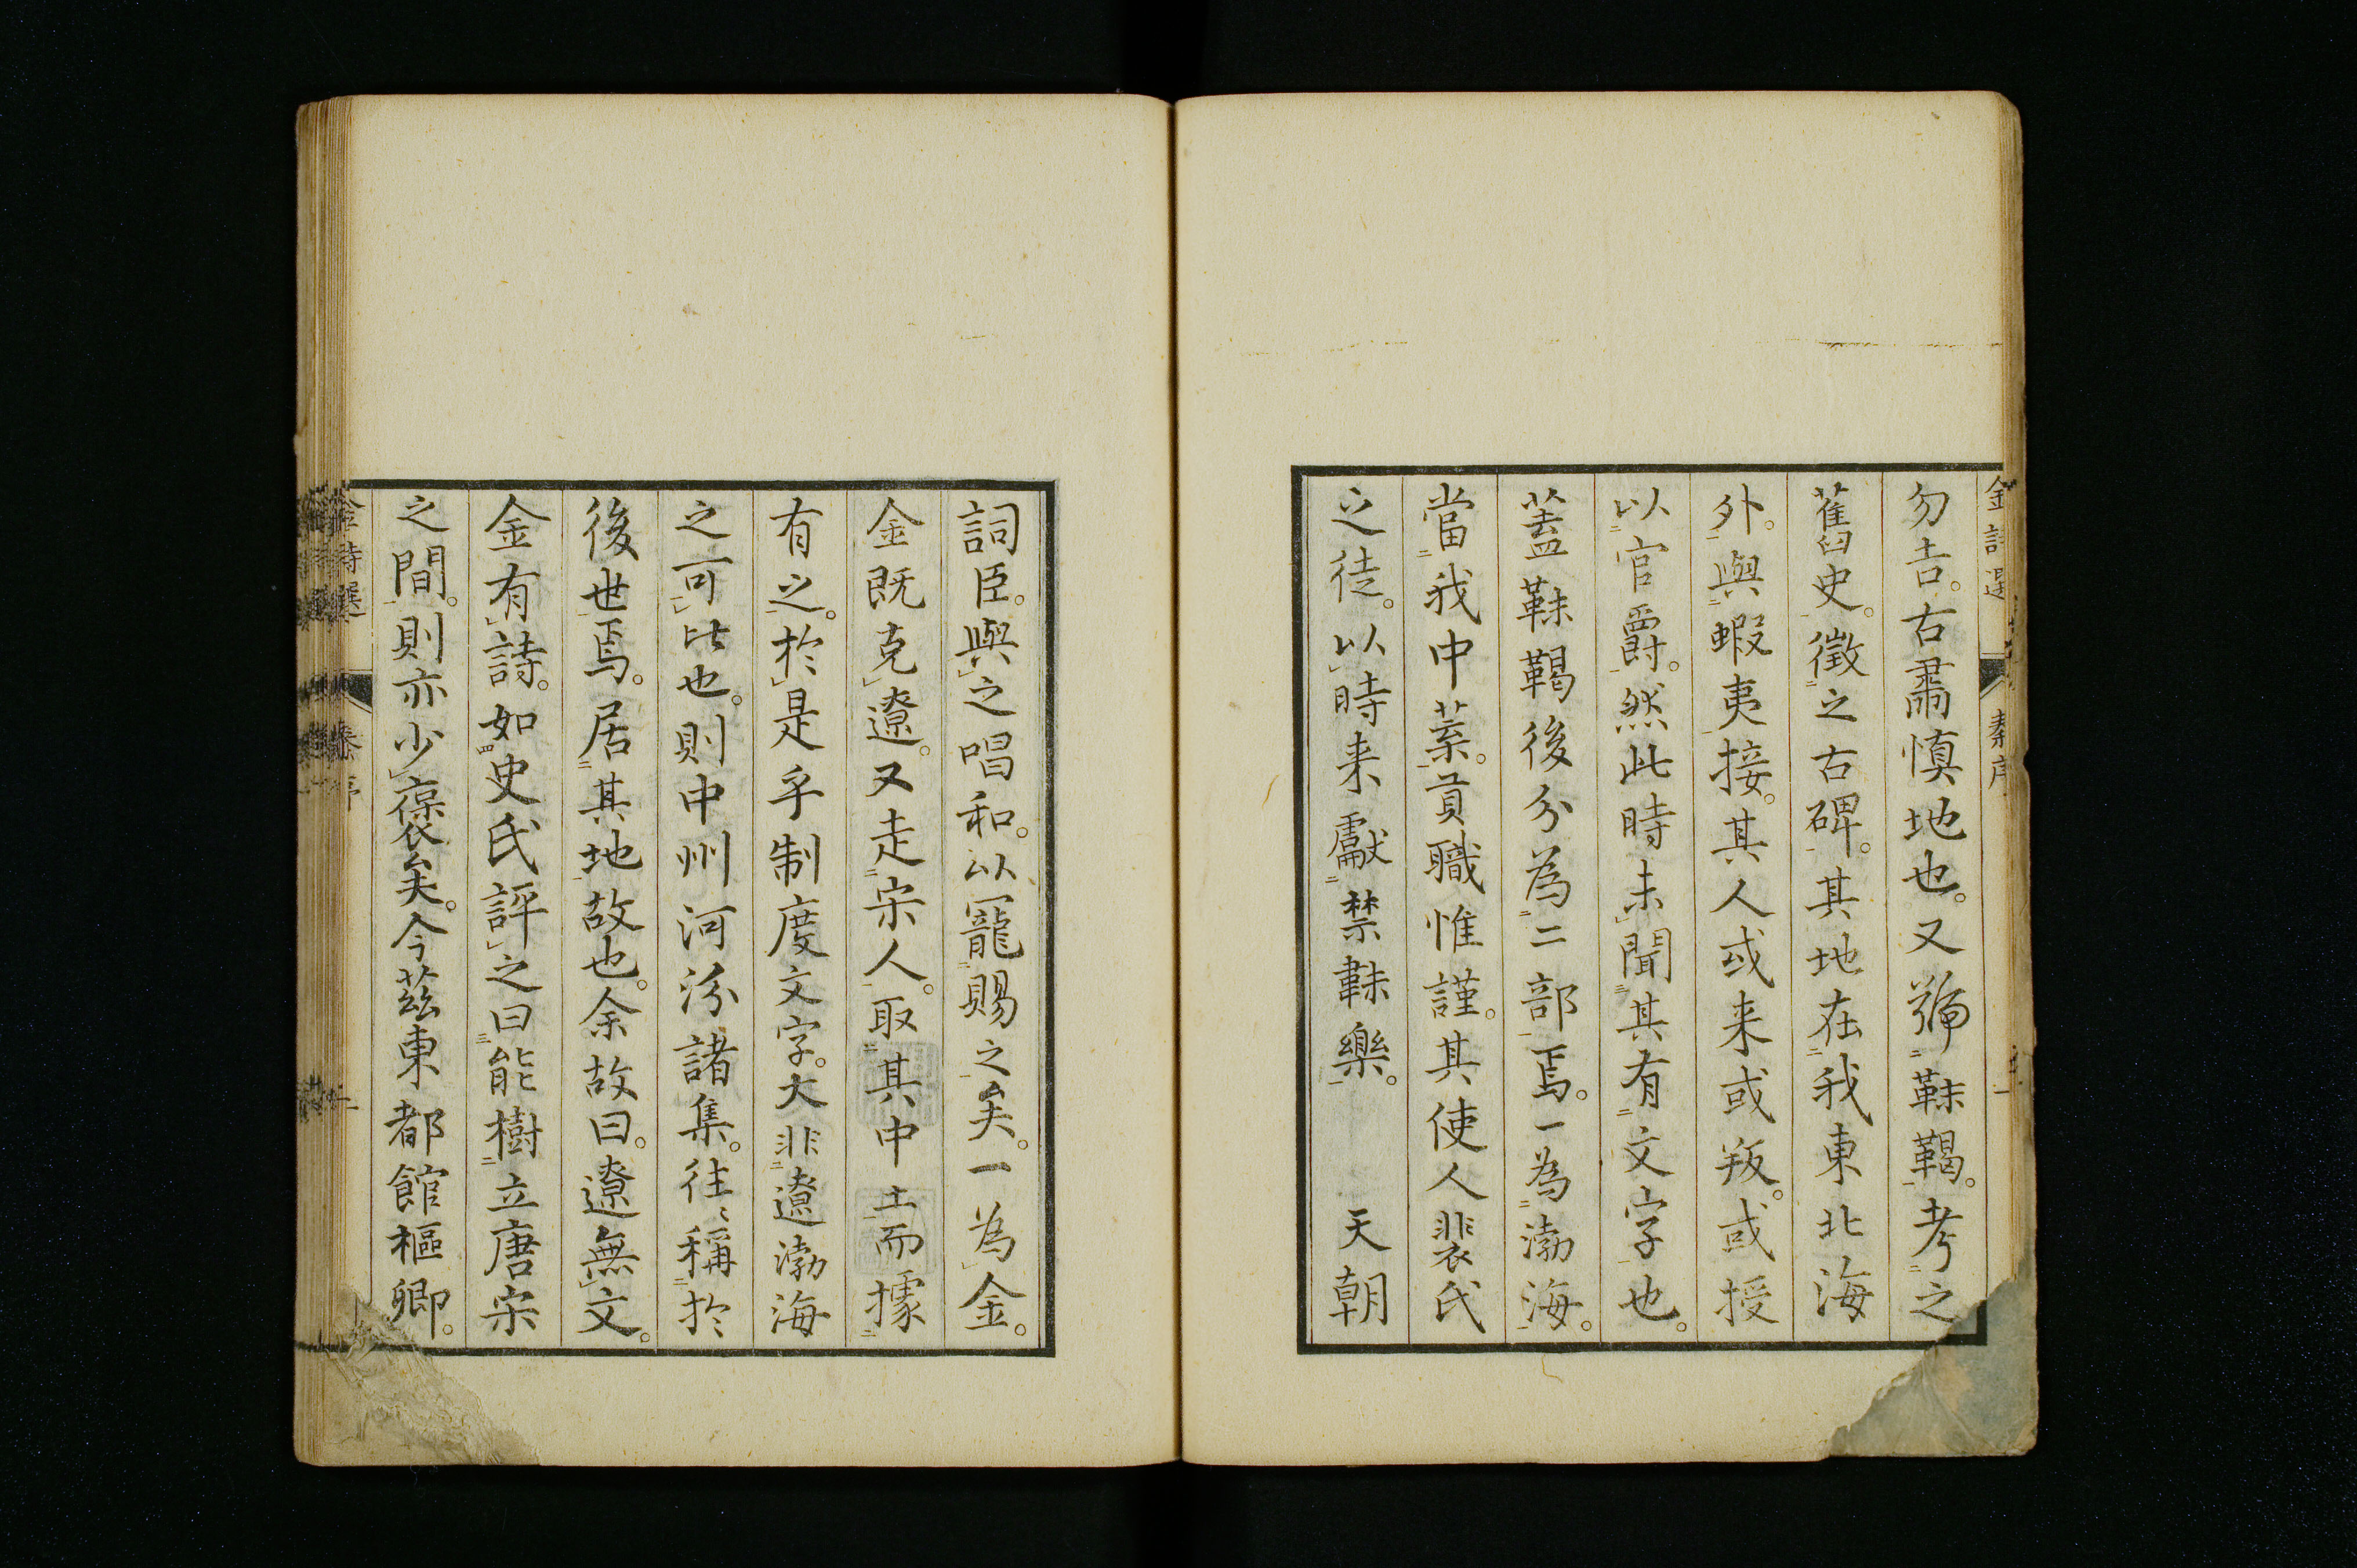 金詩選 秦序 一
勿吉。古肅慎地也。又號靺鞨。考之
舊史。徵之古碑。其地在我東北海
外。與蝦夷接。其人或来或叛。或授
以官爵。然此時未聞其有文字也。
蓋靺鞨後分為二部焉。一為渤海。
當我中葉。貢職惟謹。其使人裴氏
之徒。以時来獻禁韎樂。天朝
詞臣。與之唱和。以寵賜之矣。一為金。
金既克遼。又走宋人。取其中土而據
有之。於是乎制度文字。大非遼渤海
之可比也。則中州河汾諸集。往〻稱於
後世焉。居其地故也。余故曰。遼無文。
金有詩。如史氏評之曰能樹立唐宋
之間。則亦少褒矣。今茲東都館樞卿。
金詩選 秦序 二